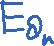 E∂n